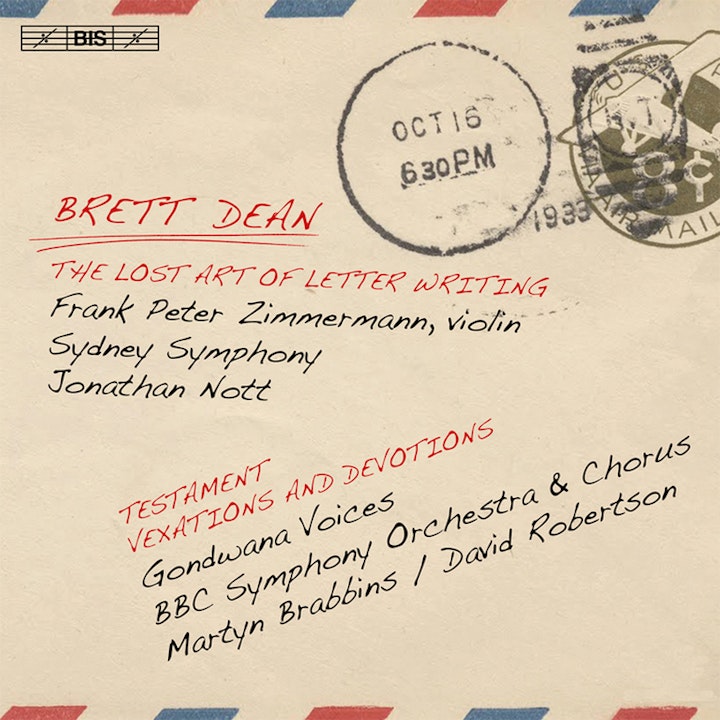 BIS
OCT 16
6 30 PM
1933
8¢
AIR MAIL
BRETT DEAN
THE LOST ART OF LETTER WRITING
Frank Peter Zimmermann, violin
Sydney Symphony
Jonathan Nott
TESTAMENT
VEXATIONS AND DEVOTIONS
Gondwana Voices
BBC Symphony Orchestra & Chorus
Martyn Brabbins / David Robertson